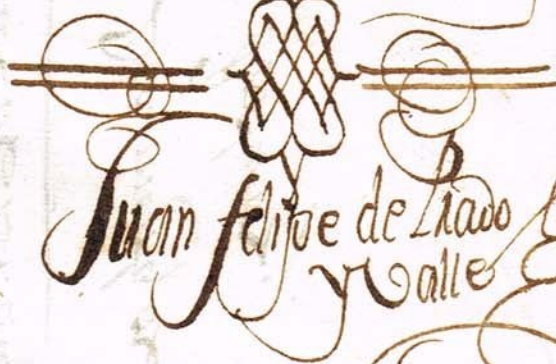 Juan felipe de Prado
y Valle